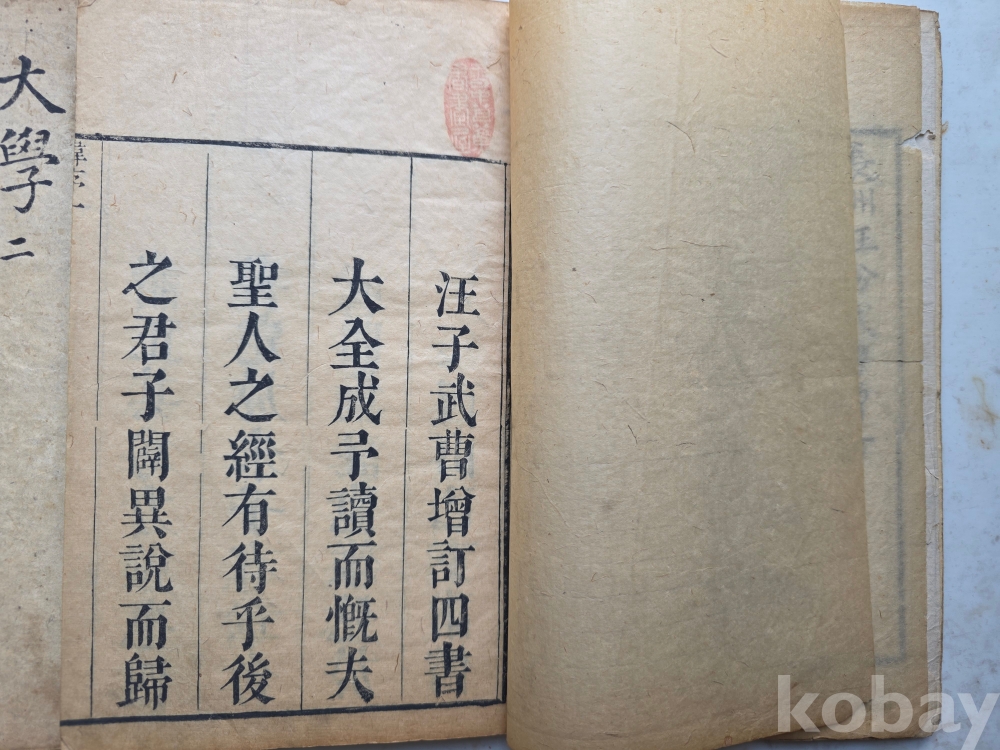 汪子武曹增訂四書
大全成予讀而慨夫
聖人之經有待乎後
之君子闢異說而歸
大學二
kobay